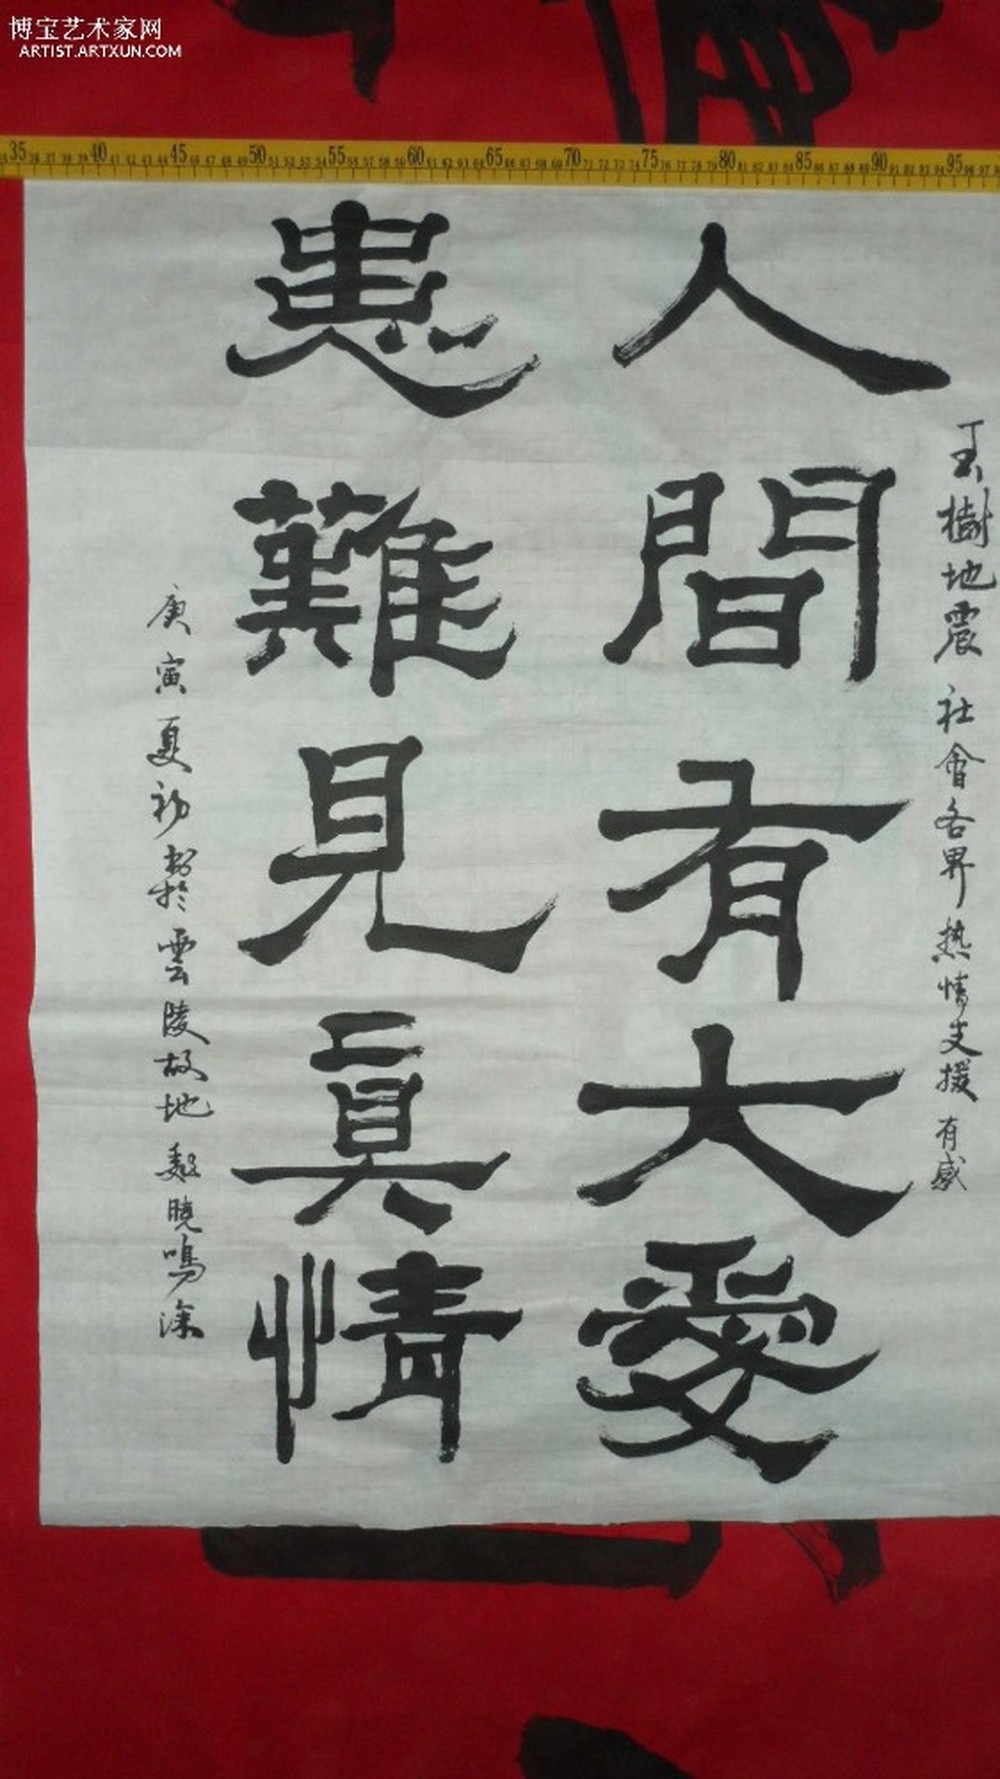 博宝艺术家网
ARTIST.ARTXUN.COM
35 40 45 50 55 60 65 70 75 80 85 90 95
玉樹地震 社會各界 热情支援 有感
人間有大愛
患難見真情
庚寅夏初書於雲陵故地 魏曉鳴涂